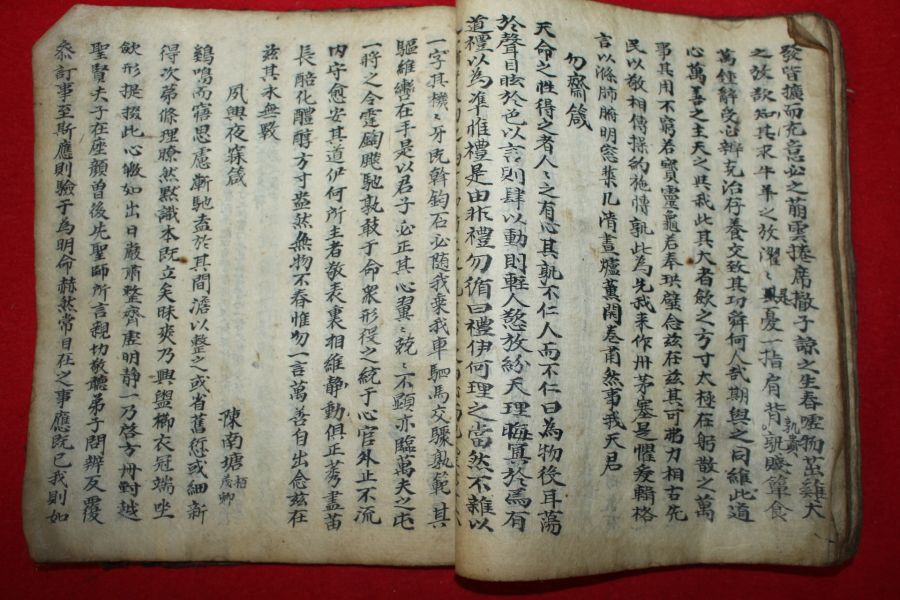 發皆擴而充意必之萌雲捲席撤子諒之生春噓物茁雞犬
之放欲知其求牛羊之牧濯濯是憂一指肩背孰貴孰賤簞食
萬鍾辭受必辨克治存養交致其功舜何人哉期與之同維此道
心萬善之主天之與我此其大者斂之方寸太極在躬散之萬
事其用不窮若寶靈龜若奉拱璧念玆在玆其可弗力相古先
民以敬相傳操約施博孰此為先我來作州茅塞是懼爰輯格
言以滌肺腑明窓棐几清晝爐薰開卷肅然事我天君
勿齋箴
天命之性得之者人人之有心其孰不仁人而不仁曰為物役耳蕩
於聲目眩於色以言則肆以動則輕人慾放紛天理晦冥於焉有
道禮以為準惟禮是由非禮勿循曰禮伊何理之當然不雜以
一字其機機牙既幹鈞石必隨我乘我車駟馬交驟孰範其
驅維轡在手是以君子必正其心翼翼兢兢不顯亦臨萬夫之屯
一將之令霆鍧飈馳孰敢于命衆形役之統于心官外止不流
內守愈安其道伊何所主者敬表裏相維靜動俱正莠盡苗
長醅化醴醇方寸盎然無物不春惟勿一言萬善自出念玆在
玆其永無斁
夙興夜寐箴
陳南塘 栢 茂卿
鷄鳴而寤思慮漸馳盍於其間澹以整之或省舊愆或紬新
得次第條理瞭然默識本既立矣昧爽乃興盥櫛衣冠端坐
斂形提掇此心皦如出日嚴肅整齊虛明靜一乃啓方冊對越
聖賢夫子在座顏曾後先聖師所言親切敬聽弟子問辨反覆
叅訂事至斯應則驗于為明命赫然常目在之事應既已我則如